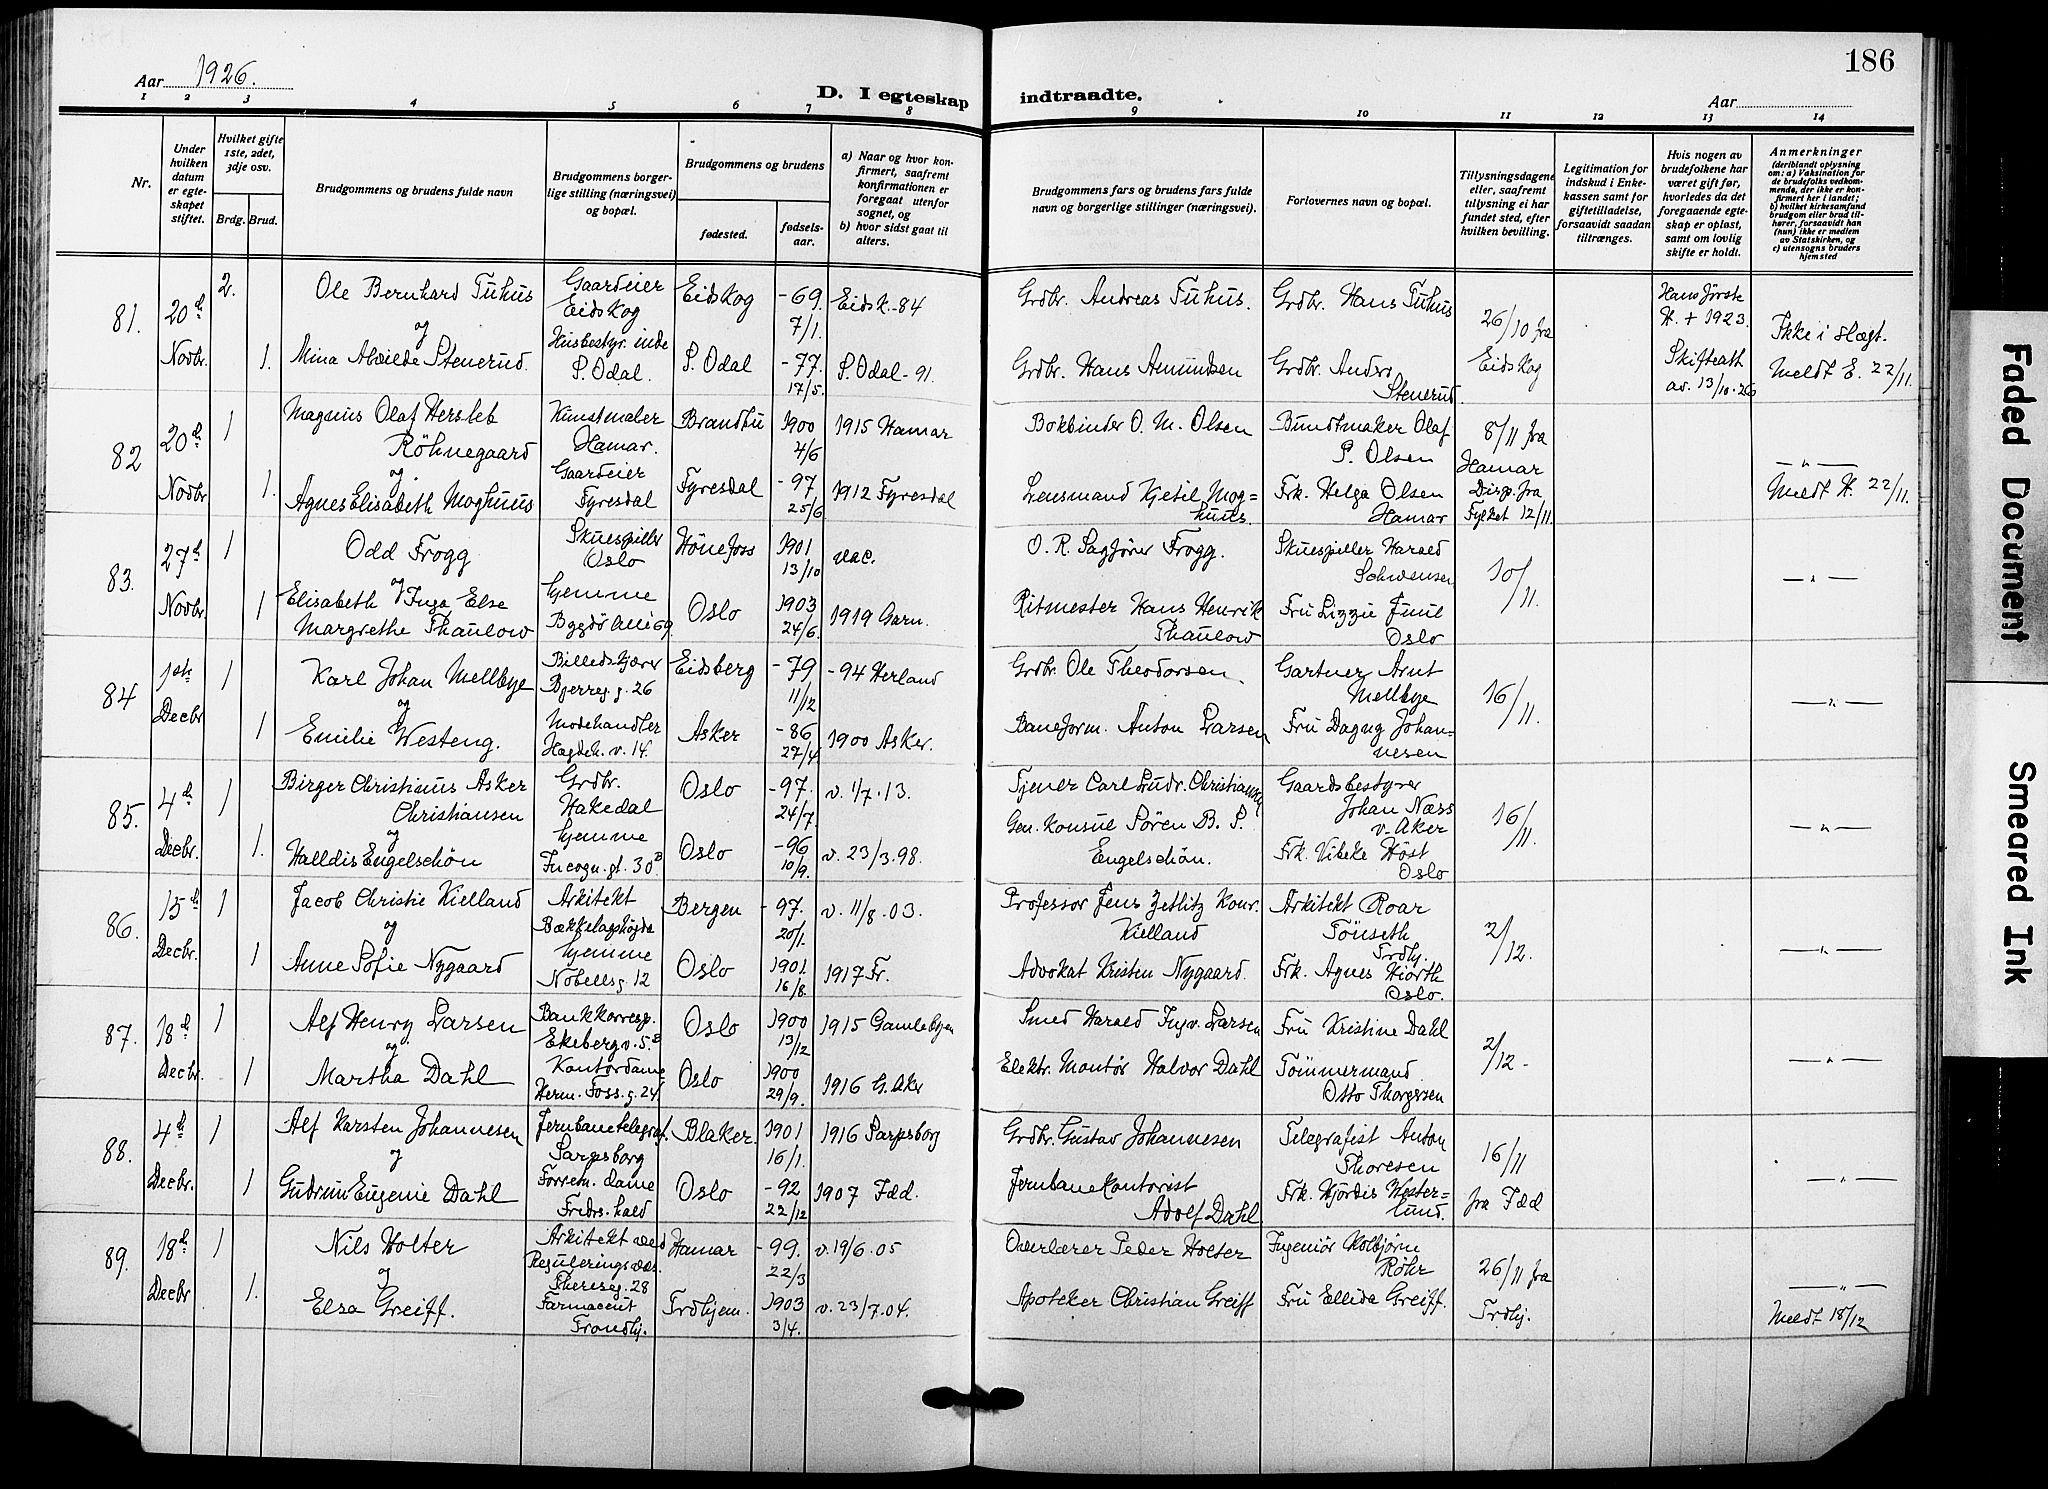 186
Aar 1926.
D. I egteskap indtraadte.
Aar
1 2 3 4 5 6 7 8 9 10 11 12 13 14
Nr.
Under hvilken datum er egteskapet stiftet.
Hvilket gifte 1ste, 2det, 3dje osv.
Brdg. Brud.
Brudgommens og brudens fulde navn
Brudgommens borgerlige stilling (næringsvei) og bopæl.
Brudgommens og brudens
fødested.
fødselsaar.
a) Naar og hvor konfirmert, saafremt konfirmationen er foregaat utenfor sognet, og
b) hvor sidst gaat til alters.
Brudgommens fars og brudens fars fulde navn og borgerlige stillinger (næringsvei).
Forlovernes navn og bopæl.
Tillysningsdagene eller, saafremt tillysning ei har fundet sted, efter hvilken bevilling.
Legitimation for indskud i Enkekassen samt for giftetilladelse, forsaavidt saadan tiltrænges.
Hvis nogen av brudefolkene har været gift før, hvorledes da det foregaaende egteskap er opløst, samt om lovlig skifte er holdt.
Anmerkninger
(deriblandt oplysning om: a) Vaksination for de brudefolks vedkommende, der ikke er konfirmert her i landet;
b) hvilket kirkesamfund brudgom eller brud tilhører, forsaavidt han (hun) ikke er medlem av Statskirken, og
c) utensogns bruders hjemsted
81. 20d Novbr. 2. Ole Bernhard Tuhus Gaardeier Eidskog Eidskog -69. 7/1. Eidsk.-84 Grdbr. Andreas Tuhus. Grdbr. Hans Tuhus 26/10 fra Eidskog Hans første H. + 1923. Skifteatt. av. 13/10.26 Ikke i slegt.
og
1. Mina Alvilde Stenerud. Husbestyr.inde S. Odal. S. Odal -77. 17/5. S. Odal-91. Grdbr. Hans Amundsen Grdbr. Anders Stenerud. Meldt E. 22/11.
82 20d Novbr 1 Magnus Olaf Hersleb Röhnegaard Kunstmaler Hamar. Brandbu 1900 4/6 1915 Hamar Bokbinder O. M. Olsen Buntmaker Olaf P. Olsen 8/11 fra Hamar
og
1. Agnes Elisabeth Moghuus Gaardeier Fyresdal Fyresdal -97 25/6 1912 Fyresdal Lensmand Kjetil Moghuus. Frk. Helga Olsen Hamar Disp. fra Fylket 12/11. — " — Meldt H. 22/11.
83. 27d Novbr. 1 Odd Frogg Skuespiller Oslo Hönefoss 1901 13/10 vac. O. R. Sagfører Frogg. Skuespiller Harald Schwenzen 10/11. — " —
og
1 Elisabeth Inga Else Margrethe Thaulow hjemme Bygdö Allé 69. Oslo 1903 24/6. 1919 Garn. Ritmester Hans Henrik Thaulow Fru Lizzie Juul Oslo
84 1ste Decbr 1 Karl Johan Mellbye Billedskjærer Bjerreg.g. 26 Eidsberg -79 11/12 -94 Herland Grdbr. Ole Theodorsen. Gartner Arnt Mellbye 16/11. — " —
og
1 Emilie Westeng. Modehandler Hagdeh. v. 14. Asker -86 27/4 1900 Asker. Baneform. Anton Larsen Fru Dagny Johannesen
85. 4d Decbr. 1 Birger Christianus Asker Christiansen Grdbr. Hakedal Oslo -97. 24/7. v. 1/7.13. Tjener Carl Ludv. Christiansen Gaardsbestyrer Johan Næss v. Aker 16/11. — " —
og
1. Halldis Engelschön hjemme Incogn.gt. 30B Oslo -96 10/9. v. 23/3.98. Gen. Konsul Sören B. S. Engelschön. Frk. Vibeke Höst Oslo
86. 15d Decbr. 1 Jacob Christie Kielland Arkitekt Bækkelagshögda Bergen -97. 20/1. v. 11/8.03. Professor Jens Zetlitz Konr. Kielland Arkitekt Roar Tönseth Trdhj. 2/12. — " —
og
1 Anne Sofie Nygaard hjemme Nobellsg. 12 Oslo 1901. 16/8. 1917 Fr. Advokat Kristen Nygaard. Frk. Agnes Hiorth Oslo.
87. 18d Decbr. 1 Alf Henry Larsen Bankkorresp. Ekebergv. 5.B Oslo 1900 13/12 1915 Gamlebyen Smed Harald Ingv. Larsen Fru Kristine Dahl 2/12. — " —
og
1 Martha Dahl Kontordame Herm. Foss.g. 24 Oslo 1900 29/9. 1916 G. Aker Elektr. Montör Halvor Dahl Tömmermand Otto Thorgersen
88. 4d Decbr. 1 Alf Karsten Johannesen Jernbanetelegraf. Sarpsborg Blaker 1901 16/1. 1916 Sarpsborg Grdbr. Gustav Johannesen Telegrafist Anton Thoresen 16/11 fra Fdd — " —
og
1 Gudrun Eugenie Dahl Forretn. dame Fredrs.hald Oslo -92 22/12 1907 Fdd. Jernbanekontorist Adolf Dahl Frk. Hjördis Westerlund.
89. 18d Decbr 1 Nils Holter Arkitekt ved Reguleringsvæs. Thereseg. 28 Hamar -99. 22/3 v. 19/6.05 Overlærer Peder Holter Ingeniör Kolbjörn Röhr 26/11 fra Trdhj. — " —
og
1. Elsa Greiff. Farmaceut Trondhj. Trdhjem. 1903 3/4. v. 23/7.04. Apoteker Christian Greiff Fru Ellida Greiff. Meldt 18/12
Faded Document
Smeared Ink